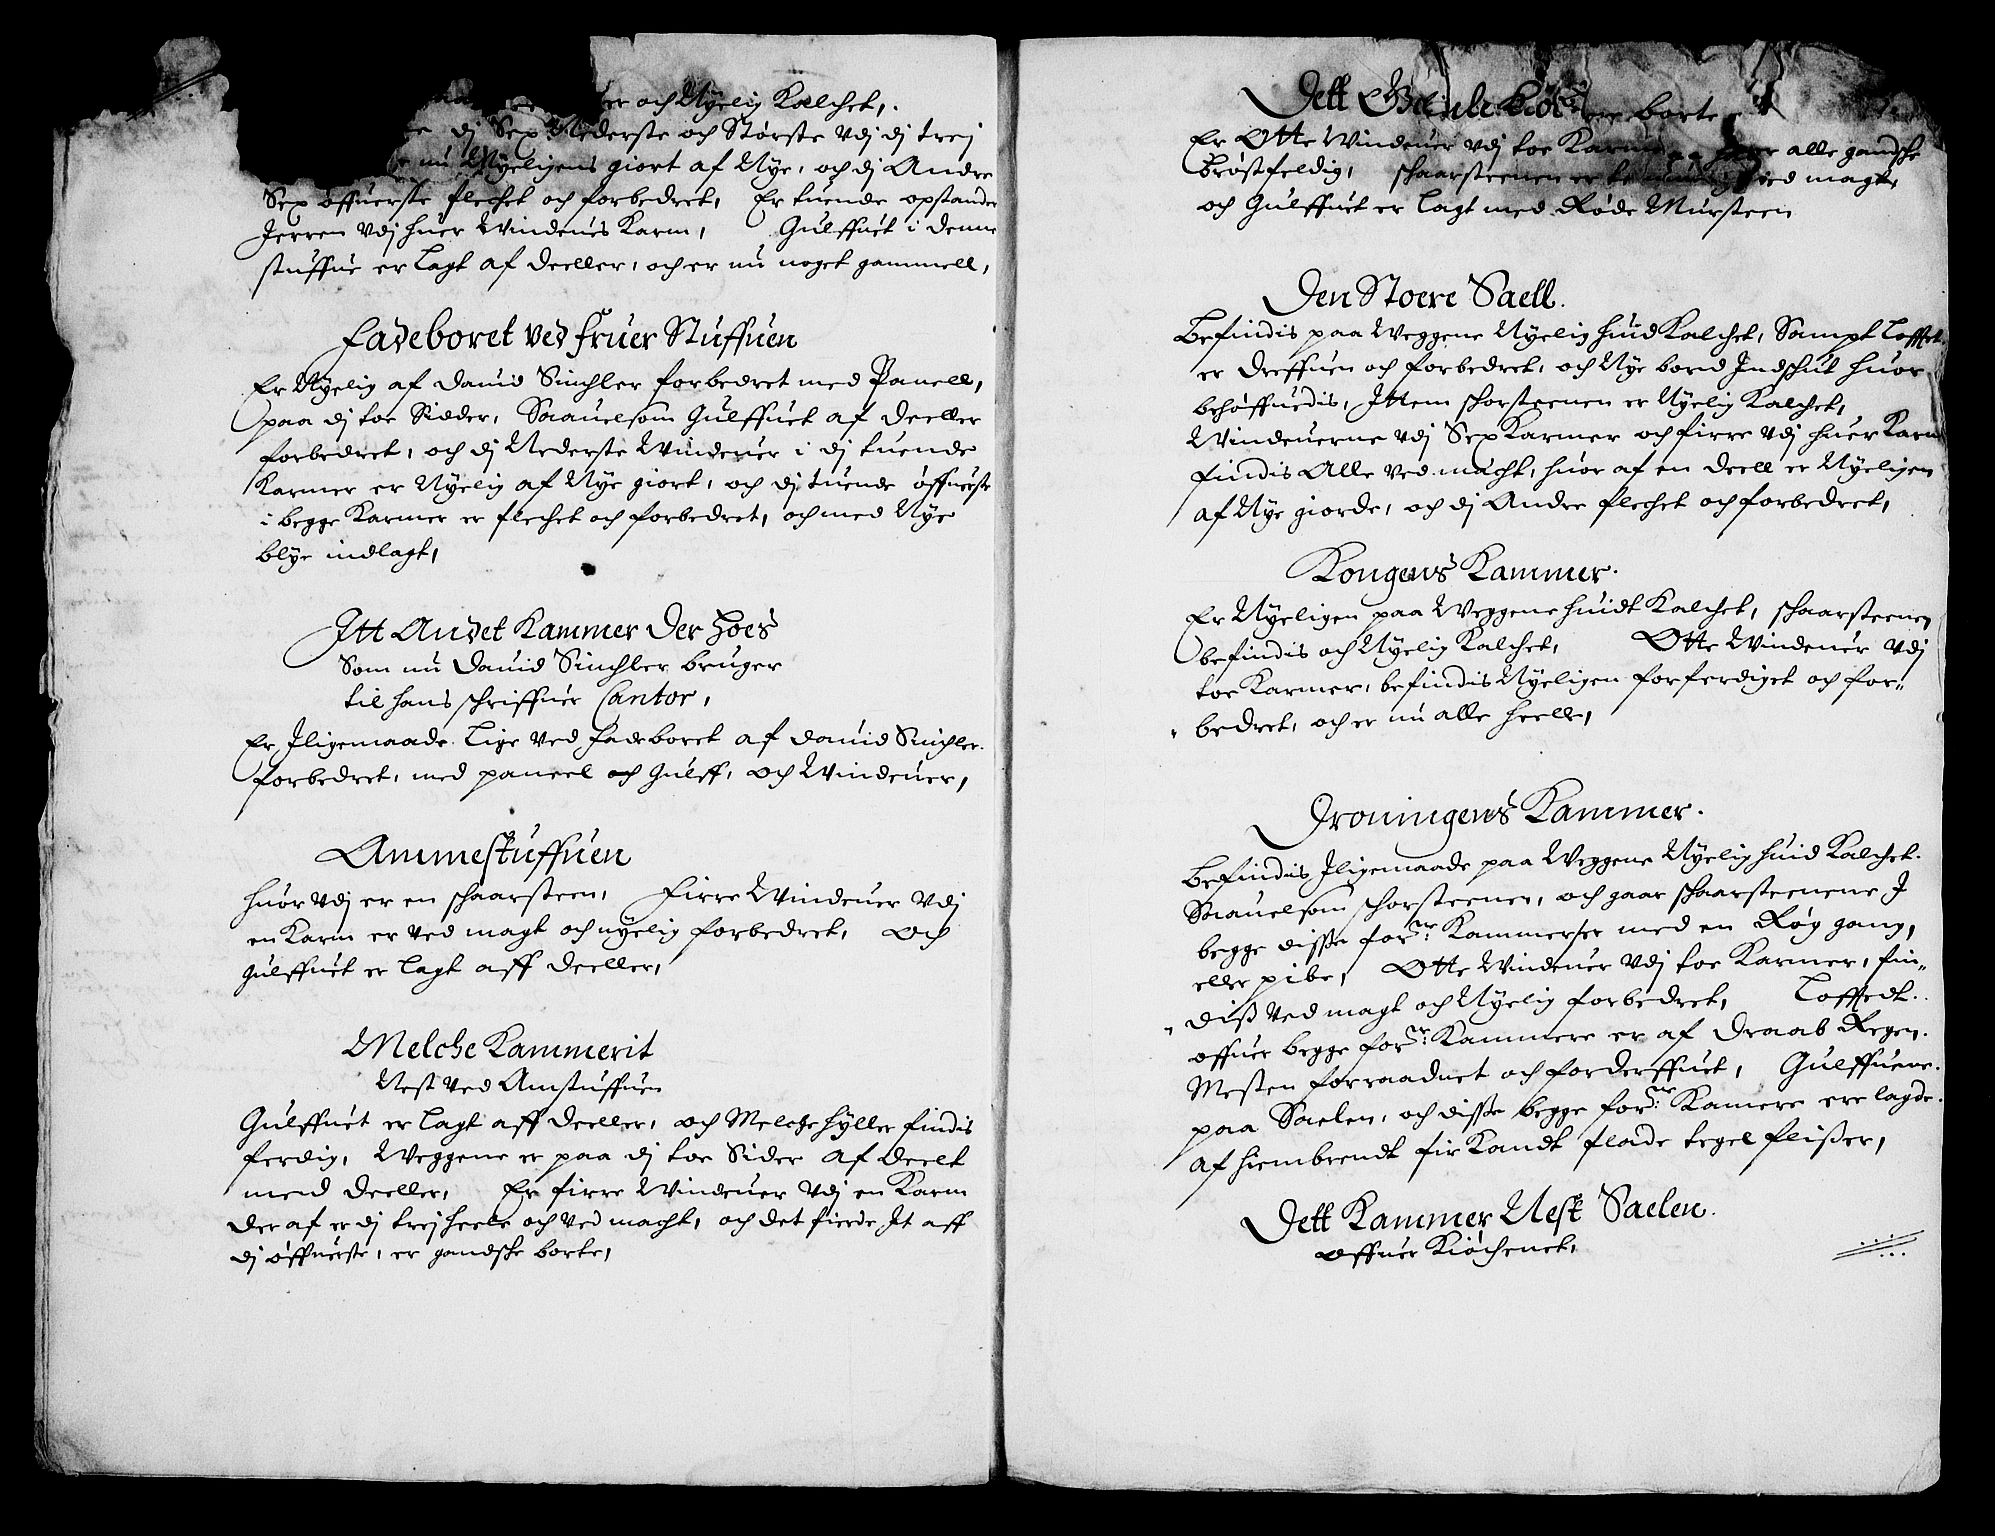 er och Nÿelig Kalchet,
dj Sex Nederste och Störste vdj dj trej
nu Nÿeligens giort af Nÿe, och dj Andre
Sex öffuerste flechet och forbedret, Er tuende opstander
Jerren vdj huer Windeues Karm, Gulffuet i denne
stuffue er lagt af deeller, och er nu noget gammell,
Fadeboret ved Fruer Stuffuen
Er Nÿelig af Dauid Sinchler forbedret med Panell,
paa dj toe Sidder, Saauelsom Gulffuet af deeller
forbedret, och dj Nederste Windeuer i dj tuende
Karmer er Nÿelig af Nÿe giort, och dj tuende öffuerste
i begge Karmer er flechet och forbedret, och med Nÿe
blÿe indlagt,
Itt Andet Kammer der hoes
Som nu Dauid Sinchler bruger
til hans schriffuer Cantor,
Er Jligemaade lige ved Fadeboret af Dauid Sinchler
forbedret, med paneel och Gulff, och Windeuer,
Ammestuffuen
huor vdj er en schaarsteen, Firre Windeuer vdj
en Karm er ved magt och nÿelig forbedret, Och
gulffuet er lagt aff deeller,
Melche Kammerit
Nest ved Amstuffuen
Gulffuet er lagt aff deeller, och Melche hÿller findis
ferdig, Weggene er paa dj toe Sider af deelt
med deeller, Er firre Windeuer vdj en Karm
der af er dj trej heele och ved macht, och det fierde Jt aff
dj öffuerste, er gandsche borte,
Dett borte
Er Otte Windeuer vdj toe alle gandsche
Bröstfeldig, schaarsteenen er ved magt,
och Gulffuet er lagt med Röde Mursteen
Den Stoere Saell.
Befindis paa Weggene Nÿelig huid Kalchet, Sampt Lofftet
er dreffuen och forbedret, och Nÿe bord Jndschut huor
behöffuedis, Jttem schorsteenen er Nÿelig Kalchet,
Windeuerne vdj Sex Karmer och firre vdj huer Karm
findis Alle ved macht, huor af en deell er Nÿeligen
af Nÿe giorde, och dj Andre flechet och forbedret,
Kongens Kammer.
Er Nÿeligen paa Weggene huidt Kalchet, schaarsteenen
befindis och Nÿelig Kalchet, Otte Windeuer vdj
toe Karmer, befindis Nÿeligen forferdiget och for-
bedret, och er nu alle heelle,
Droningens Kammer.
Befindis Jligemaade paa Weggene Nÿelig huid Kalchet.
Saauelsom schorsteenen, och gaar schaarsteenene J
begge disse for:ne Kammerser med en Røg gang,
eller pibe, Otte Windeuer vdj toe Karmer, fin-
diß ved magt och Nÿelig forbedret, Lofftedt
offuer begge for:ne Kammere er af Draab Regen
Mesten forraadnet och forderffuet, Gulffuene
paa Saelen, och disse begge for:ne Kamere ere lagde
af hiembrendt firkandt flade tegel flißer,
Dett Kammer Nest Saelen.
offuer Kiöchenet,